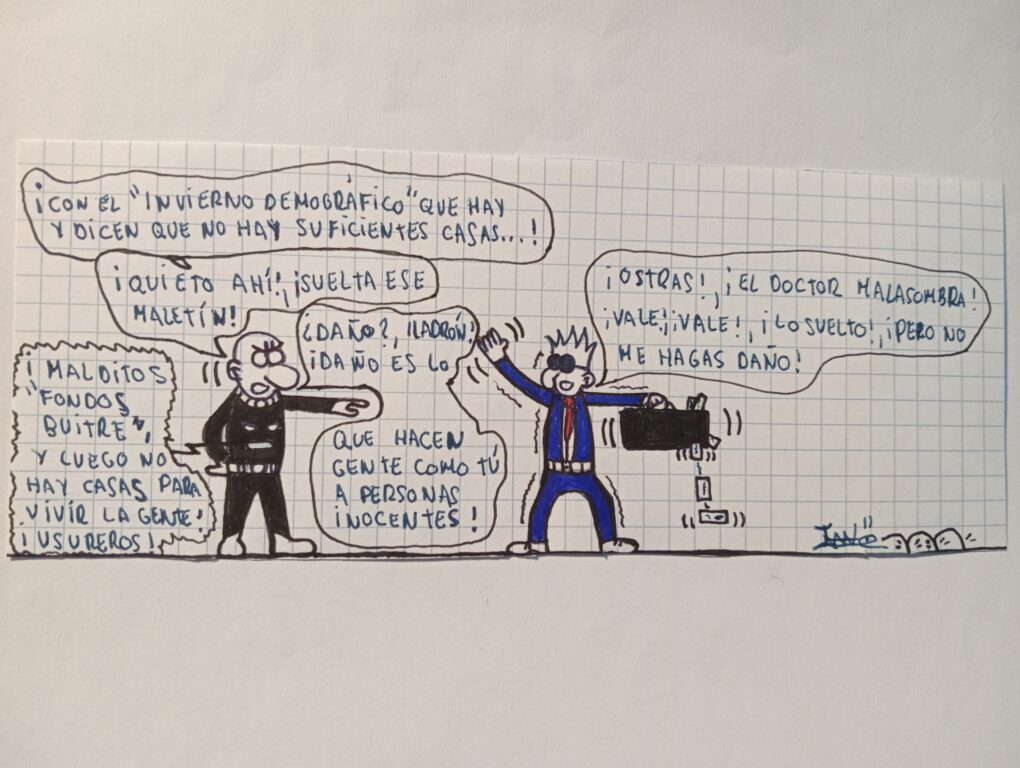 ¡CON EL "INVIERNO DEMOGRÁFICO" QUE HAY
Y DICEN QUE NO HAY SUFICIENTES CASAS...!
¡QUIETO AHÍ!, ¡SUELTA ESE
MALETÍN!
¡MALDITOS
"FONDOS
BUITRE",
Y LUEGO NO
HAY CASAS PARA
VIVIR LA GENTE!
¡USUREROS!
¿DAÑO?, ¡LADRÓN!
¡DAÑO ES LO
QUE HACEN
GENTE COMO TÚ
A PERSONAS
INOCENTES!
¡OSTRAS!, ¡EL DOCTOR MALASOMBRA!
¡VALE!, ¡VALE!, ¡LO SUELTO!, ¡PERO NO
ME HAGAS DAÑO!